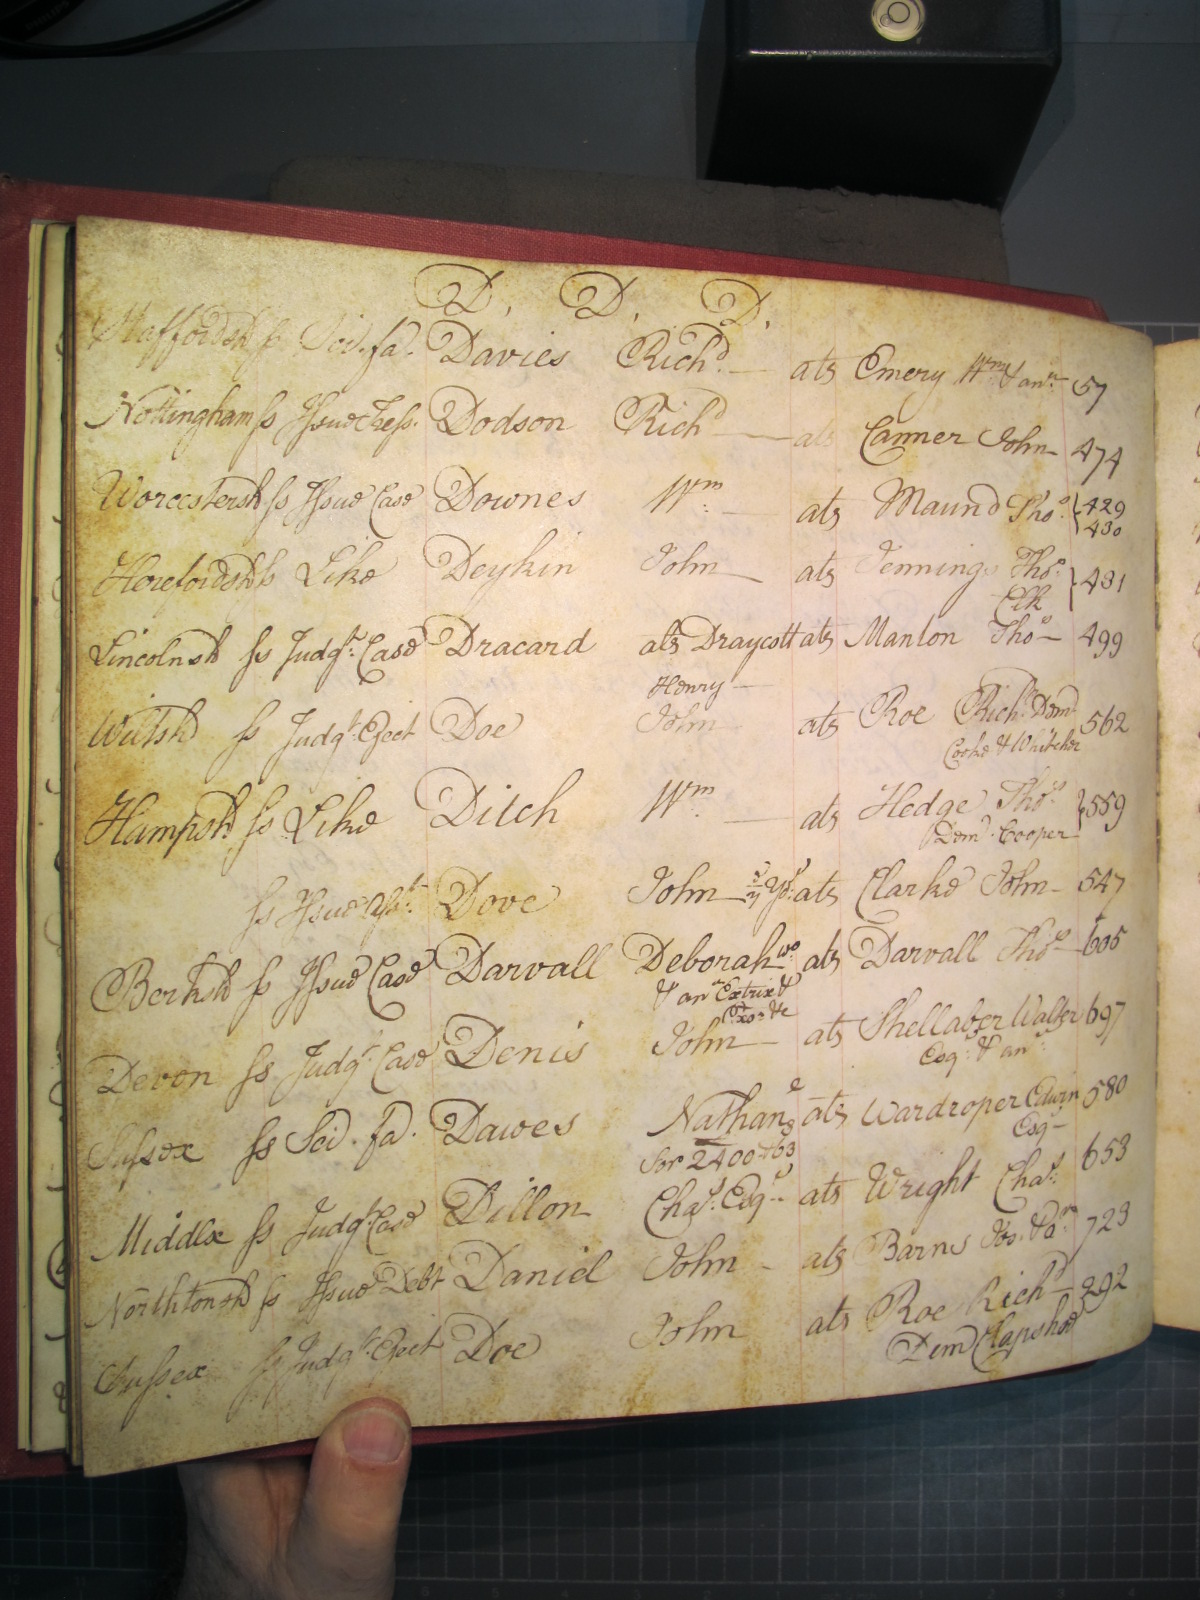 D, D, D,
Staffordsh ss Sci. fa. Davies Richd — ats Emery Wm & anr 57
Nottingham ss Issue Tresp. Dodson Richd — ats Canner John 474
Worcestersh ss Issue Case Downes Wm — ats Maund Thos. 429
430
Herefordsh ss Like Deykin John — ats Jennings Thos. 431
Clk
Lincolnsh ss Judgt. Case Dracard als Draycott ats Manton Thos — 499
Henry —
Wiltsh ss Judgt. Eject Doe John — ats Roe Richd Dem 562
Cooke & Whitcher
Hampsh ss Like Ditch Wm — ats Hedge Thos. 559
Dem. Cooper
ss Issue Dove John ats Clarke John — 547
Berksh ss Issue Case Darvall Deborah wo ats Darvall Thos — 605
& anr Extrix &
Exor &c
Devon ss Judgt. Case Denis John — ats Shellaber Walter 697
Esqr. & anr.
Sussex ss Sci. fa. Dawes Nathan ats Wardroper Edwin 580
Esqr —
for 2400=63
Middlx ss Judgt. Case Dillon Chas. Esqr. — ats Wright Chas. 653
Northtonsh ss Issue Debt Daniel John — ats Barns Jos. & ar 723
Sussex ss Judgt. Eject Doe John ats Roe Richd — 292
Dem Clapshoe